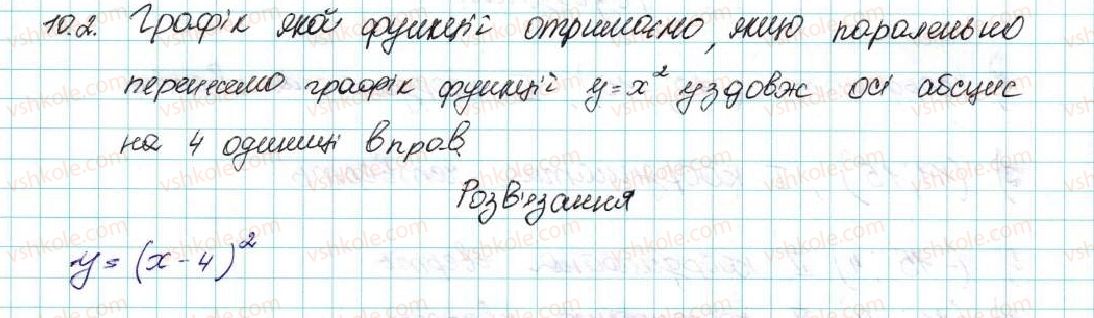 10.2. Графік якої функції отримаємо, якщо паралельно
перенесемо графік функції y=x² уздовж осі абсцис
на 4 одиниці вправ.
Розв'язання
y=(x-4)²